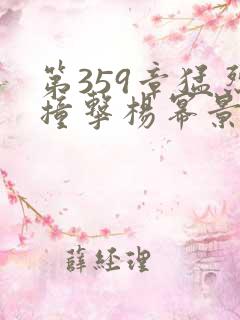 第359章猛烈
撞擊楊冪景
薛經理